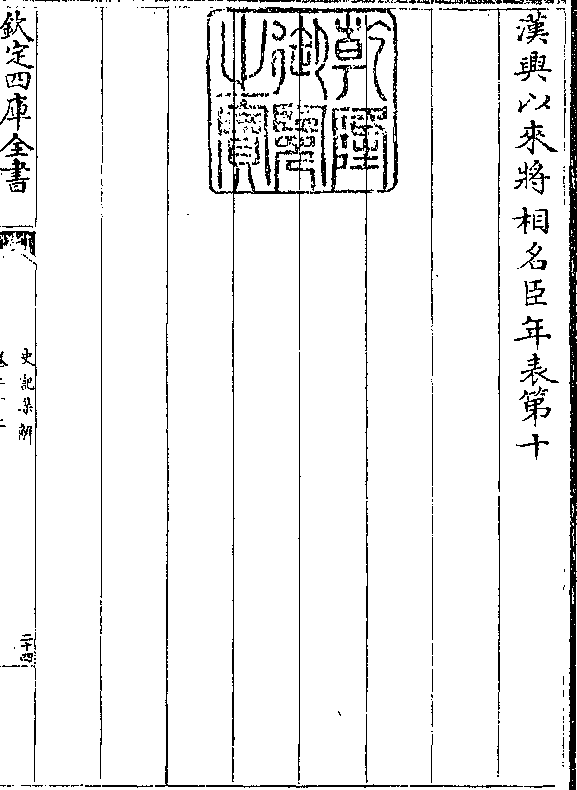 漢興以來將相名臣年表第十
乾隆御覽之寶
欽定四庫全書
史記集解
卷二十二
二十四